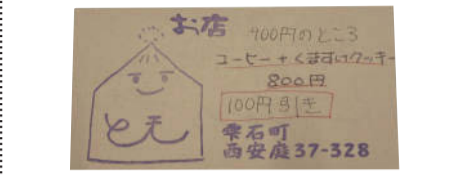 お店
900円のところ
コーヒー+くまずいクッキー
800円
100円引き
とえ
雫石町
西安庭37-328